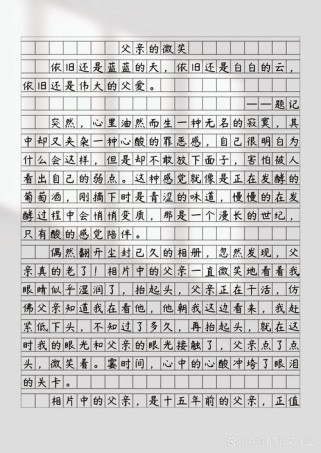 父亲的微笑
依旧还是蓝蓝的天，依旧还是白白的云，
依旧还是伟大的父爱。
——题记
突然，心里油然而生一种无名的寂寞，其
中却又夹杂一种心酸的罪恶感，自己很明白为
什么会这样，但是却不敢放下面子，害怕被人
看出自己的弱点。这种感觉就像是正在发酵的
葡萄酒，刚摘下时是青涩的味道，慢慢的在发
酵过程中会悄悄变质，那是一个漫长的世纪，
只有酸的感觉陪伴。
偶然翻开尘封已久的相册，忽然发现，父
亲真的老了！相片中的父亲一直微笑地看着我
眼睛似乎湿润了，抬起头，父亲正在干活，仿
佛父亲知道我在看他，他朝我这边看来，我赶
紧低下头，不知过了多久，再抬起头，就在这
时我的眼光和父亲的眼光接触了，父亲点了点
头，微笑着。霎时间，心中的心酸冲垮了眼泪
的关卡。
相片中的父亲，是十五年前的父亲，正值